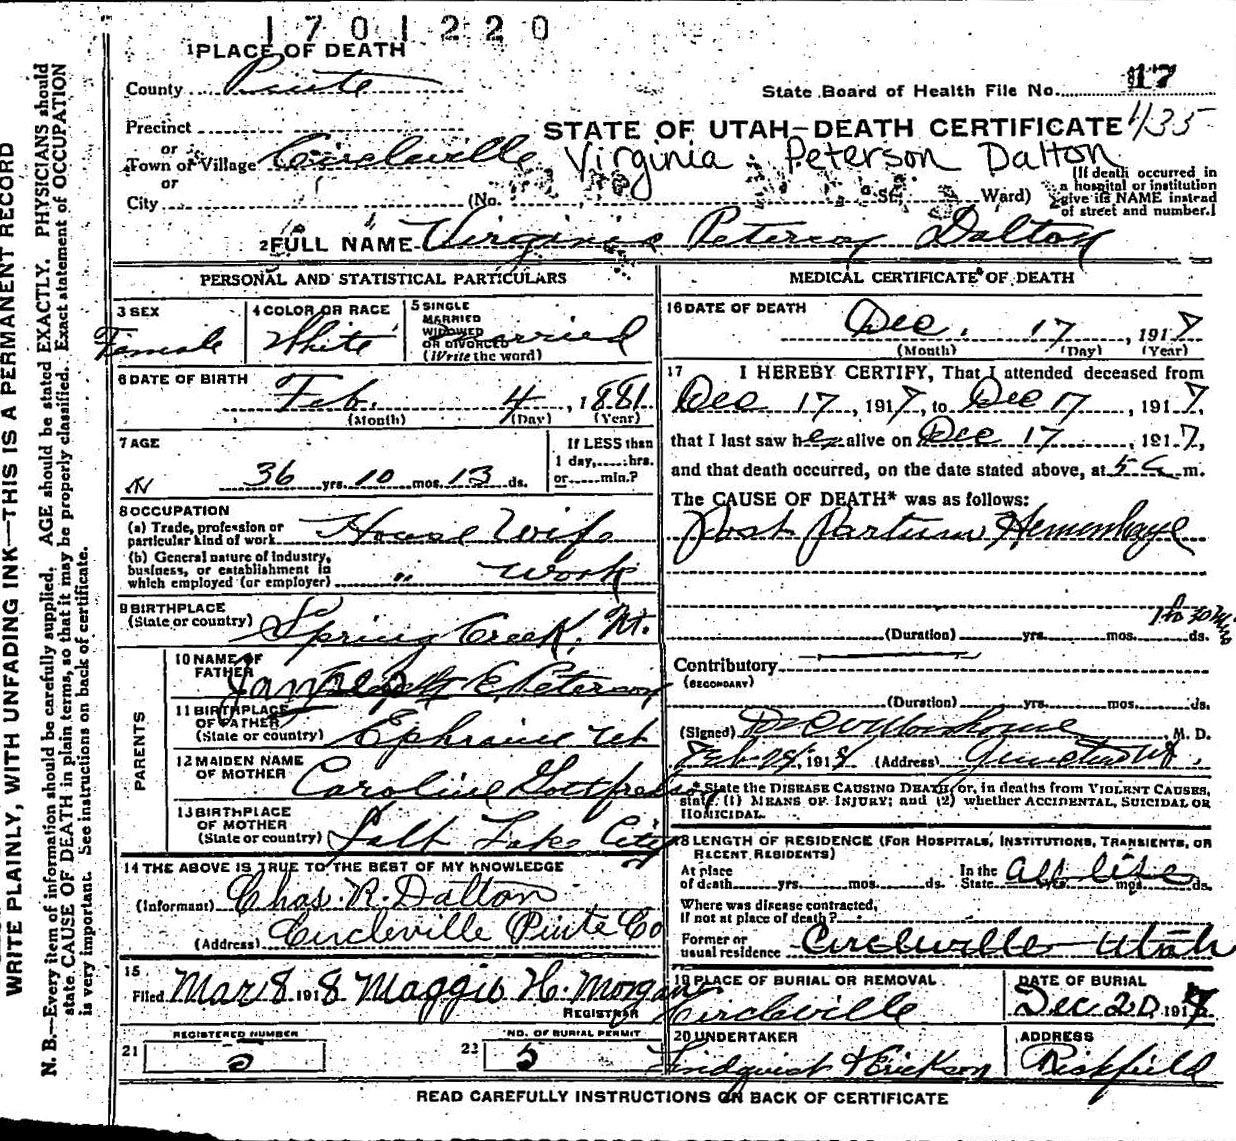 1701220
1 PLACE OF DEATH
County Piute
State Board of Health File No. 17
Precinct
STATE OF UTAH—DEATH CERTIFICATE 435
or
Town or Village Circleville Virginia Peterson Dalton
or
City (No. St. Ward)
(If death occurred in
a hospital or institution
give its NAME instead
of street and number.)
2 FULL NAME Virginia Peterson Dalton
PERSONAL AND STATISTICAL PARTICULARS
3 SEX
Female
4 COLOR OR RACE
White
5 SINGLE
MARRIED
WIDOWED
OR DIVORCED
(Write the word)
Married
6 DATE OF BIRTH
Feb. 4, 1881
(Month) (Day) (Year)
7 AGE
36 yrs. 10 mos. 13 ds.
If LESS than
1 day, hrs.
or min.?
8 OCCUPATION
(a) Trade, profession or
particular kind of work House Wife
(b) General nature of industry,
business, or establishment in
which employed (or employer) " work
9 BIRTHPLACE
(State or country) Spring Creek, Ut.
PARENTS
10 NAME OF
FATHER James E. Peterson
11 BIRTHPLACE
OF FATHER
(State or country) Ephraim Ut
12 MAIDEN NAME
OF MOTHER Caroline Gottfredson
13 BIRTHPLACE
OF MOTHER
(State or country) Salt Lake City
14 THE ABOVE IS TRUE TO THE BEST OF MY KNOWLEDGE
(Informant) Chas. R. Dalton
(Address) Circleville Piute Co
15
Filed Mar 8 1918 Maggie H. Morgan
REGISTRAR
REGISTERED NUMBER
21 5
NO. OF BURIAL PERMIT
22 5
MEDICAL CERTIFICATE OF DEATH
16 DATE OF DEATH
Dec. 17, 1917
(Month) (Day) (Year)
17 I HEREBY CERTIFY, That I attended deceased from
Dec 17, 1917, to Dec 17, 1917,
that I last saw her alive on Dec 17, 1917,
and that death occurred, on the date stated above, at 5 a m.
The CAUSE OF DEATH* was as follows:
Post Partum Hemorrhage
1 h 30 Min
(Duration) yrs. mos. ds.
Contributory
(SECONDARY)
(Duration) yrs. mos. ds.
(Signed) M. D.
Feb 25, 1918 (Address) Junction Ut.
*State the DISEASE CAUSING DEATH, or, in deaths from VIOLENT CAUSES,
state (1) MEANS OF INJURY; and (2) whether ACCIDENTAL, SUICIDAL OR
HOMICIDAL.
18 LENGTH OF RESIDENCE (FOR HOSPITALS, INSTITUTIONS, TRANSIENTS, OR
RECENT RESIDENTS)
At place
of death yrs. mos. ds.
In the
State all life yrs. mos. ds.
Where was disease contracted,
If not at place of death?
Former or
usual residence Circleville Utah
19 PLACE OF BURIAL OR REMOVAL
Circleville
DATE OF BURIAL
Dec 20 1917
20 UNDERTAKER
Lindquist & Erickson
ADDRESS
Richfield
READ CAREFULLY INSTRUCTIONS ON BACK OF CERTIFICATE
WRITE PLAINLY, WITH UNFADING INK—THIS IS A PERMANENT RECORD
N. B.—Every item of information should be carefully supplied. AGE should be stated EXACTLY. PHYSICIANS should
state CAUSE OF DEATH in plain terms, so that it may be properly classified. Exact statement of OCCUPATION
is very important. See instructions on back of certificate.